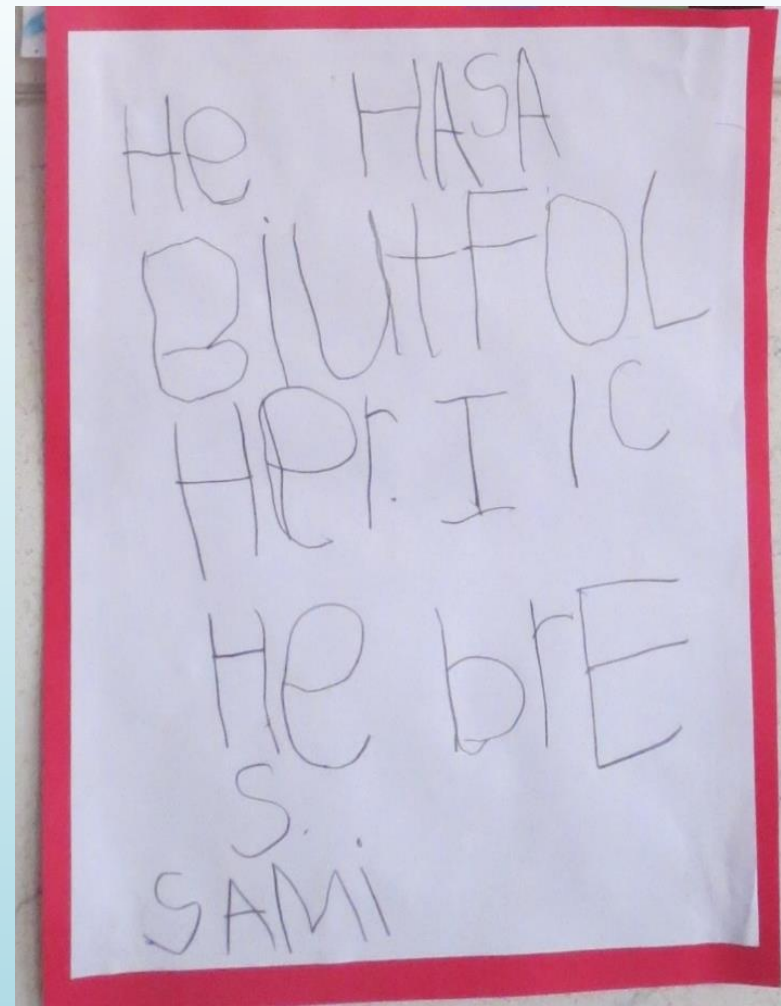 He HASA
BiUtFOL
Her. I IC
He brE
S.
SAMi